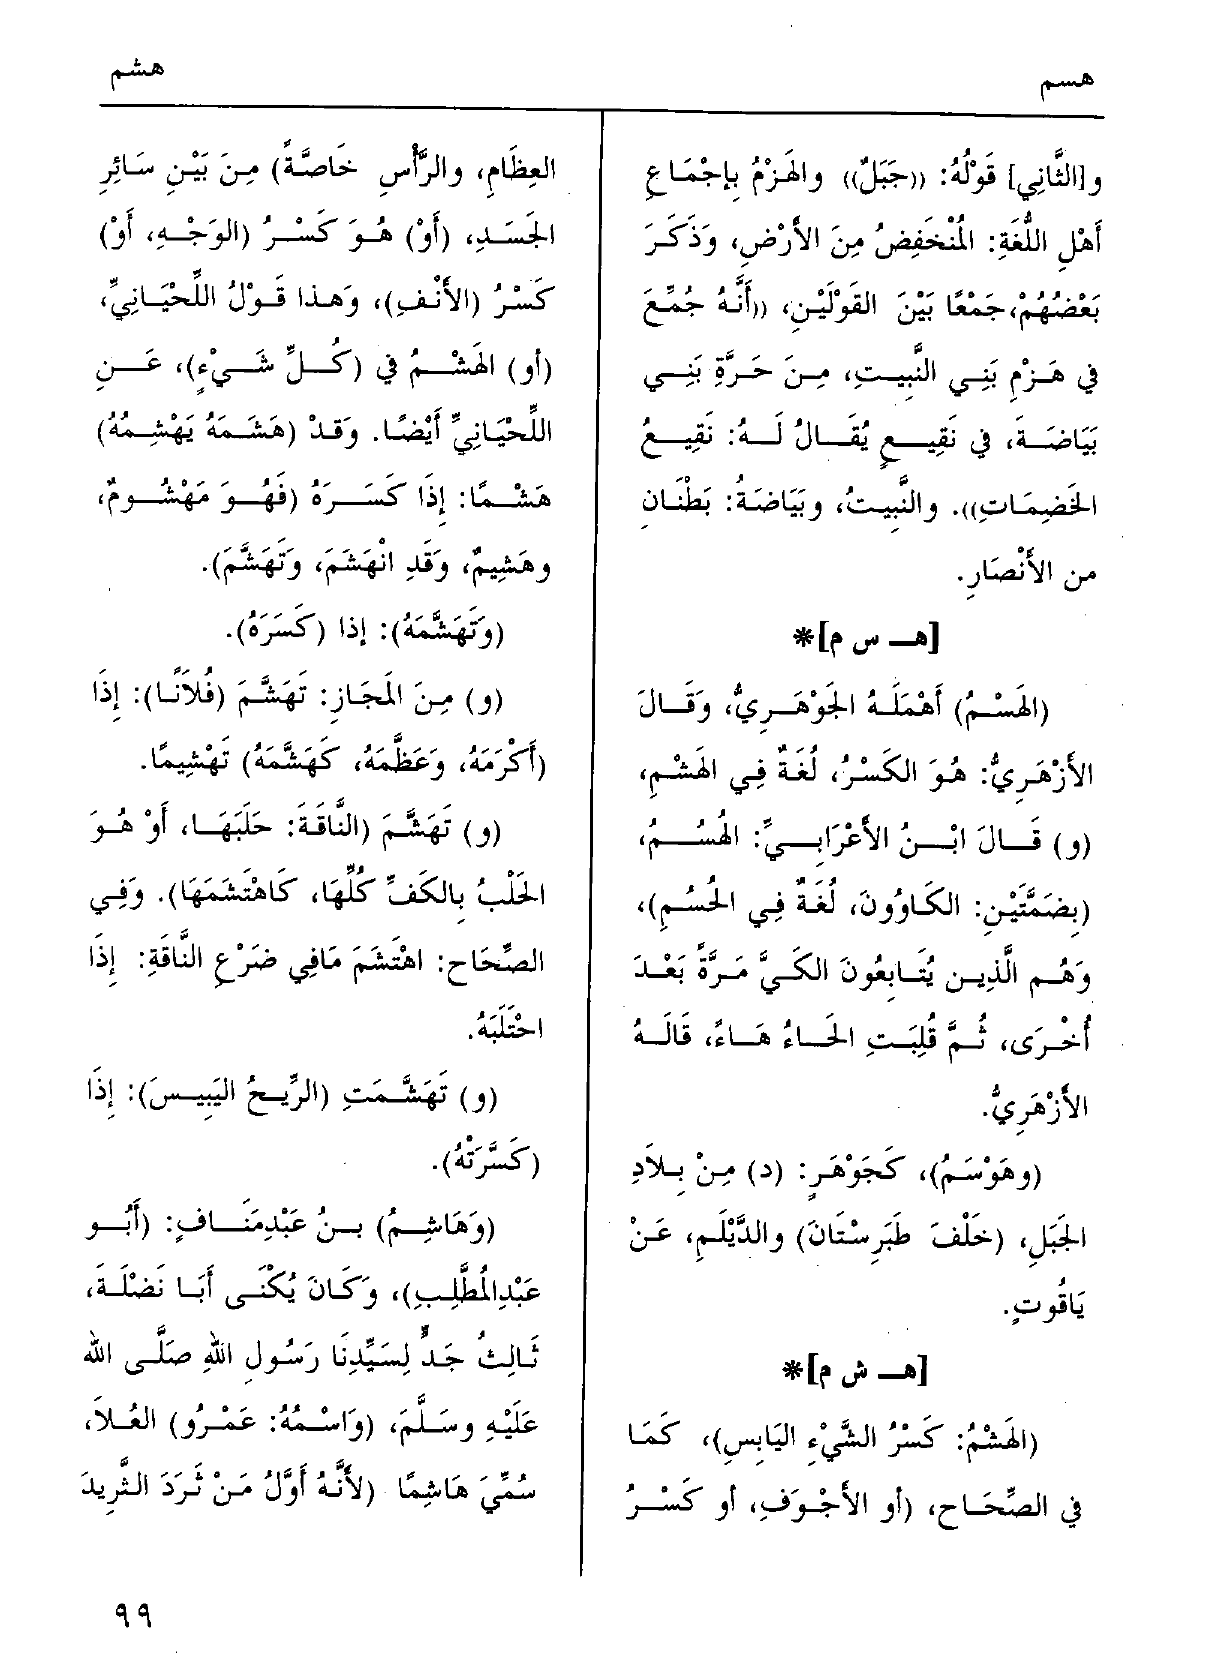 هسم
هشم
و[الثَّانِي] قَوْلُهُ: ((جَبَلٌ)) والهَزْمُ بِإجْمَاعِ
أَهْلِ اللُّغَةِ: المُنْخَفِضُ مِنَ الأَرْضِ، وَذَكَرَ
بَعْضُهُمْ، جَمْعًا بَيْنَ القَوْلَيْنِ، ((أَنَّهُ جُمِّعَ
في هَزْمِ بَنِي النَّبِيتِ، مِنَ حَرَّةِ بَنِي
بَيَاضَةَ، في نَقِيعٍ يُقَالُ لَهُ: نَقِيعُ
الخَضِيمَاتِ)). والنَّبِيتُ، وبَيَاضَةُ: بَطْنَانِ
من الأَنْصَارِ.
[هـ س م]*
(الهَسْمُ) أَهْمَلَهُ الجَوْهَرِيُّ، وَقَالَ
الأَزْهَرِيُّ: هُوَ الكَسْرُ، لُغَةٌ فِي الهَشْمِ،
(و) قَالَ ابْنُ الأَعْرَابِيِّ: الهُسُمُ،
(بِضَمَّتَيْنِ: الكَاوُونَ، لُغَةٌ فِي الحُسُمِ)،
وَهُم الَّذِين يُتَابِعُونَ الكَيَّ مَرَّةً بَعْدَ
أُخْرَى، ثُمَّ قُلِبَتِ الحَاءُ هَاءً، قَالَهُ
الأَزْهَرِيُّ.
(وهَوْسَمُ)، كَجَوْهَرٍ: (د) مِنْ بِلاَدِ
الجَبَلِ، (خَلْفَ طَبَرِسْتَانَ) والدَّيْلَمِ، عَنْ
يَاقُوتٍ.
[هـ ش م]*
(الهَشْمُ: كَسْرُ الشَّيْءِ اليَابِسِ)، كَمَا
في الصِّحَاحِ، (أو الأَجْوَفِ، أو كَسْرُ
العِظَامِ، والرَّأْسِ خَاصَّةً) مِنَ بَيْنِ سَائِرِ
الجَسَدِ، (أَوْ) هُوَ كَسْرُ (الوَجْهِ، أَوْ)
كَسْرُ (الأَنْفِ)، وَهَذا قَوْلُ اللِّحْيَانِيِّ،
(أو) الهَشْمُ في (كُلِّ شَيْءٍ)، عَنِ
اللِّحْيَانِيِّ أَيْضًا. وَقَدْ (هَشَمَهُ يَهْشِمُهُ)
هَشْمًا: إِذَا كَسَرَهُ (فَهُوَ مَهْشُومٌ،
وهَشِيمٌ، وَقَدِ انْهَشَمَ، وَتَهَشَّمَ).
(وَتَهَشَّمَهُ): إذا (كَسَرَهُ).
(و) مِنَ المَجَازِ: تَهَشَّمَ (فُلاَنًا): إِذَا
(أَكْرَمَهُ، وَعَظَّمَهُ، كَهَشَّمَهُ) تَهْشِيمًا.
(و) تَهَشَّمَ (النَّاقَةَ: حَلَبَهَا، أَوْ هُوَ
الحَلْبُ بِالكَفِّ كُلِّهَا، كَاهْتَشَمَهَا). وَفِي
الصِّحَاحِ: اهْتَشَمَ مَافِي ضَرْعِ النَّاقَةِ: إِذَا
احْتَلَبَهُ.
(و) تَهَشَّمَتِ (الرِّيحُ اليَبِيسَ): إِذَا
(كَسَّرَتْهُ).
(وَهَاشِمُ) بنُ عَبْدِمَنَافٍ: (أَبُو
عَبْدِالمُطَّلِبِ)، وَكَانَ يُكْنَى أَبَا نَضْلَةَ،
ثَالِثُ جَدٍّ لِسَيِّدِنَا رَسُولِ اللهِ صَلَّى الله
عَلَيْهِ وسَلَّمَ، (وَاسْمُهُ: عَمْرُو) العُلاَ،
سُمِّيَ هَاشِمًا (لأَنَّهُ أَوَّلُ مَنْ ثَرَدَ الثَّرِيدَ
٩٩